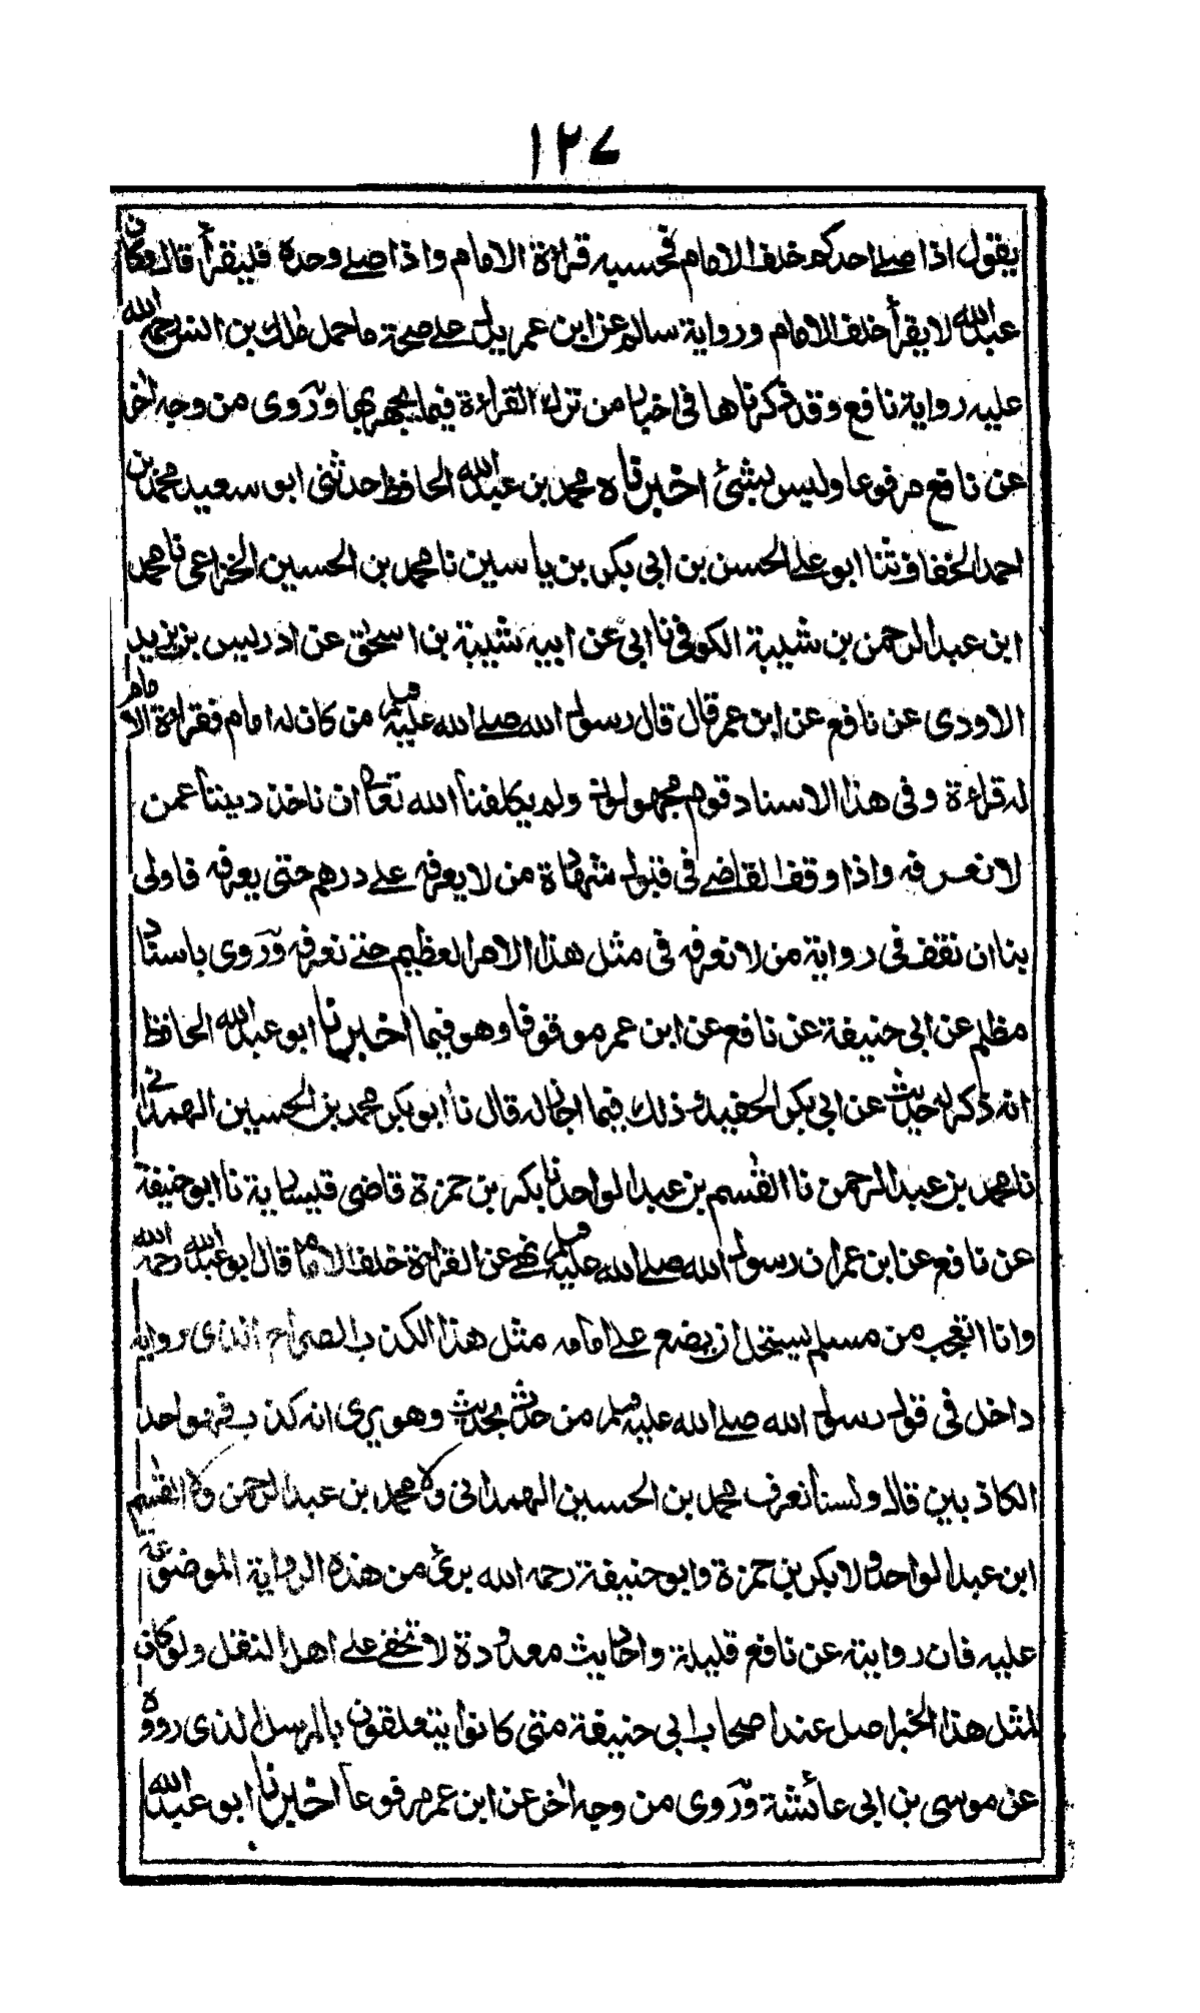 ١٢٧
يقول اذا صلى احدكم خلف الامام فحسبه قراءة الامام واذا صلى وحده فليقرأ قال وكان
عبد الله لا يقرأ خلف الامام ورواية سالم عن ابن عمر يدل على صحة ما حمل مالك بن انس رحمه الله
عليه رواية نافع وقد ذكرناها في اخبار من ترك القراءة فيما يجهر بها وروى من وجه اخر
عن نافع مرفوعا وليس بشئ اخبرناه محمد بن عبد الله الحافظ حدثني ابو سعيد محمد بن
احمد الخفاف ثنا ابو علي الحسن بن ابي بكر بن ياسين نا محمد بن الحسين الخزاعي نا محمد
ابن عبد الرحمن بن شيبة الكوفي نا ابي عن ابيه شيبة بن اسحق عن ادريس بن يزيد
الاودى عن نافع عن ابن عمر قال قال رسول الله صلى الله عليه وسلم من كان له امام فقراءة الامام
له قراءة وفي هذا الاسناد قوم مجهولون ولم يكلفنا الله تعالى ان ناخذ ديننا عمن
لا نعرفه واذا وقف القاضي في قبول شهادة من لا يعرفه على درهم حتى يعرفه فاولى
بنا ان نقف في رواية من لا نعرفه في مثل هذا الامر العظيم حتى نعرفه وروى باسناد
مظلم عن ابي حنيفة عن نافع عن ابن عمر موقوفا وهو فيما اخبرنا ابو عبد الله الحافظ
انه ذكر له حديث عن ابي بكر الحفيد وذلك فيما اجاز له قال نا ابو بكر محمد بن الحسين الهمداني
نا محمد بن عبد الرحمن نا القسم بن عبد الواحد نا بكر بن حمزة قاضي قيسارية نا ابو حنيفة
عن نافع عن ابن عمر ان رسول الله صلى الله عليه وسلم نهى عن القراءة خلف الامام قال ابو عبد الله رحمه الله
وانا اتعجب من مسلم يستحل ان يضع على امامه مثل هذا الكذب الصراح الذى روايه
داخل في قول رسول الله صلى الله عليه وسلم من حدث بحديث وهو يرى انه كذب فهو احد
الكاذبين قال ولسنا نعرف محمد بن الحسين الهمداني ولا محمد بن عبد الرحمن ولا القسم
ابن عبد الواحد ولا بكر بن حمزة وابو حنيفة رحمه الله برئ من هذه الرواية الموضوعة
عليه فان روايته عن نافع قليلة واحاديث معدودة لا تخفى على اهل النقل ولو كان
لمثل هذا الخبر اصل عند اصحاب ابي حنيفة متى كانوا يتعلقون بالمرسل الذى رووه
عن موسى بن ابي عائشة وروى من وجه اخر عن ابن عمر مرفوعا اخبرنا ابو عبد الله